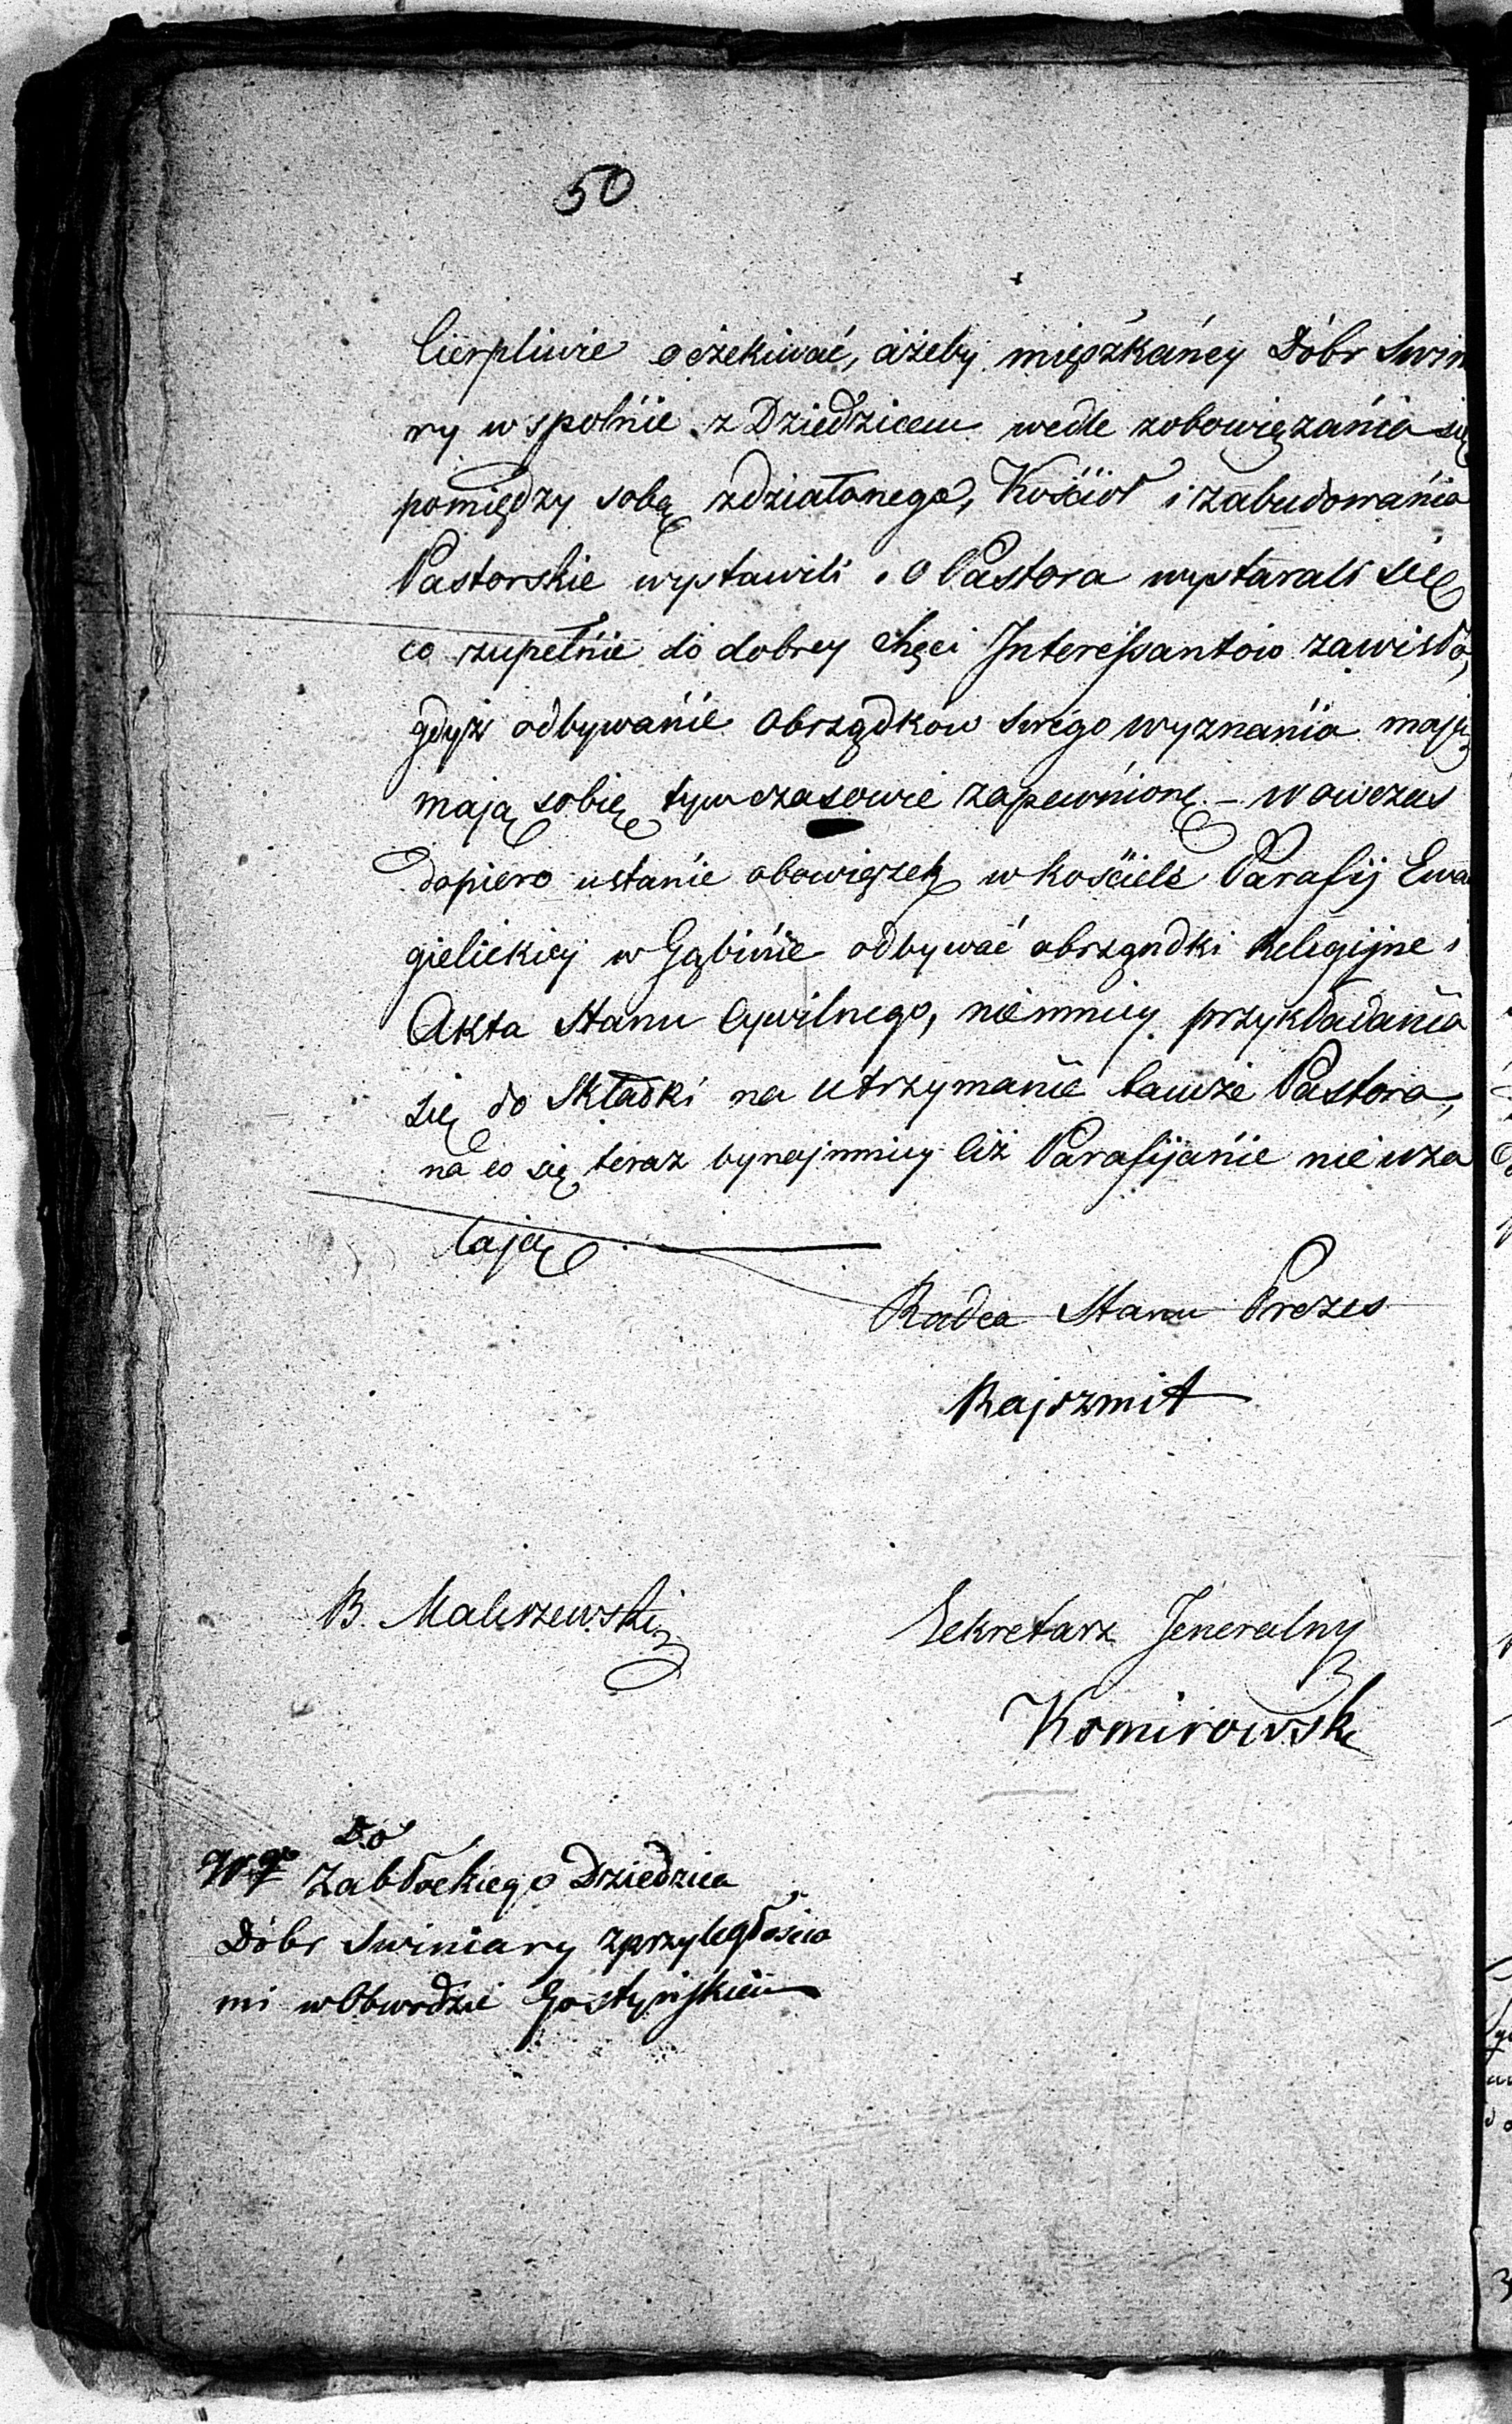 50
Cierpliwie oczekiwać, ażeby mięszkańcy Dóbr Swin
ry wspolnie z Dziedzicem wedle zobowiązania się
pomiędzy sobą zdziałanego, Kościoł i zabudowania
Pastorskie wystawili i o Pastora wystarali się
co zupełnie do dobrey chęci Interessantów zawisło,
gdyż odbywanie obrządkow swego wyznania mają
mają sobie tymczasowie zapewnione – wowczas
dopiero ustanie obowiązek w kościele Parafij Ewa
gielickiey w Gąbinie odbywać obrządki Religijne i
Akta Stanu Cywilnego, niemniey przykładania
się do Składki na utrzymanie tamże Pastora,
na co się teraz bynajmniey ciż Parafijanie nie uża
lają
Radca Stanu Prezes
Rajszmit
B. Maliszewski
Sekretarz Jeneralny
Komirowski
Do
Wgo Zabłockiego Dziedzica
Dóbr Swiniary z przyległoscia
mi w Obwodzie Gostyńskiem